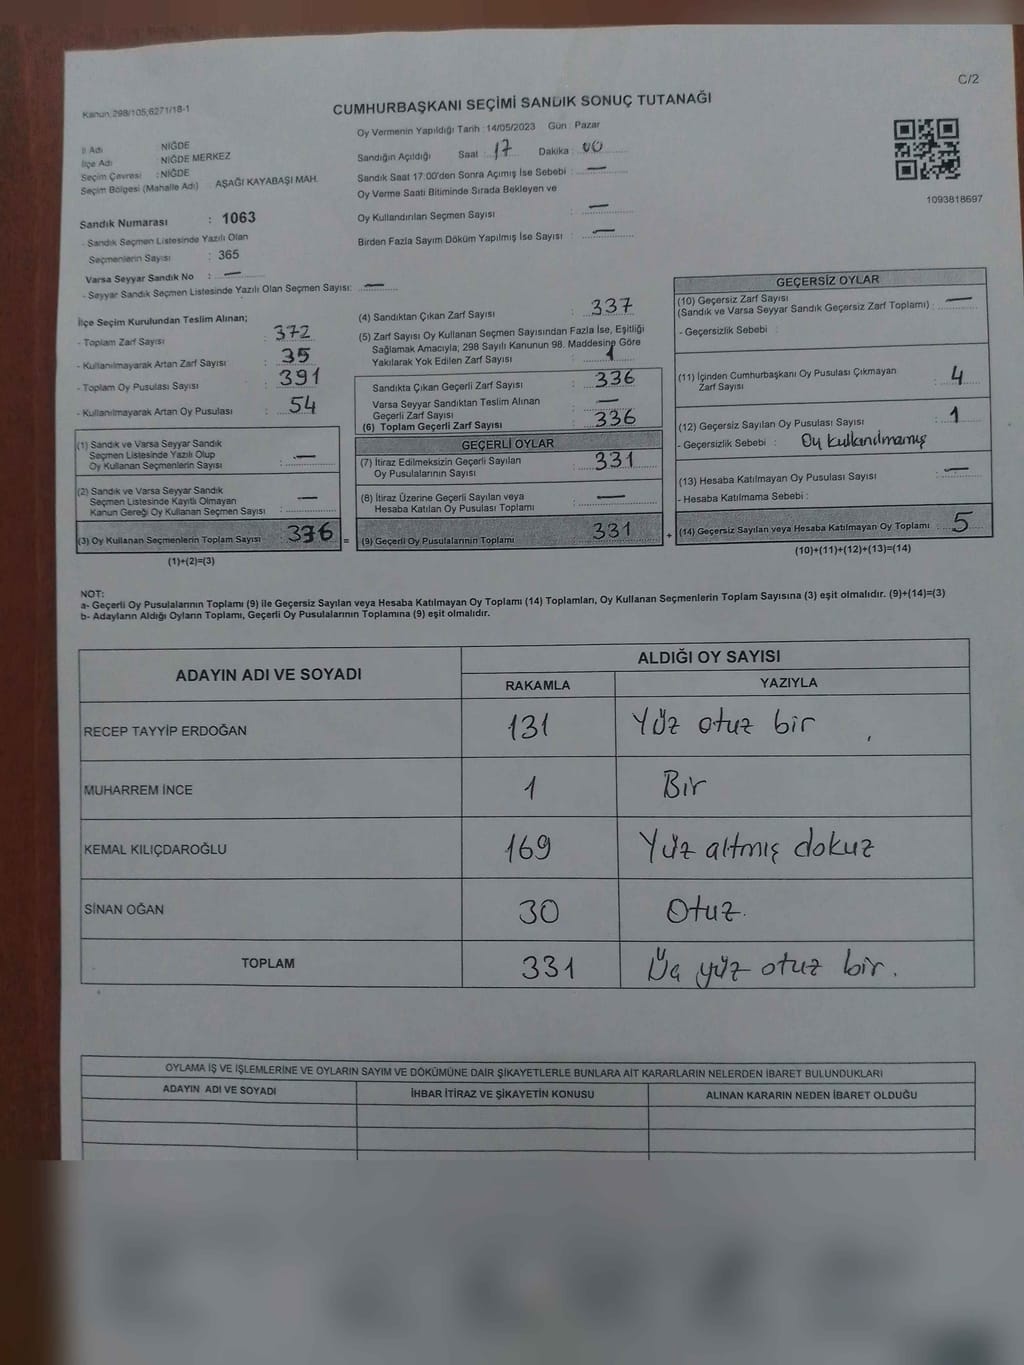 C/2
Kanun:298/105;6271/18-1
CUMHURBAŞKANI SEÇİMİ SANDIK SONUÇ TUTANAĞI
Oy Vermenin Yapıldığı Tarih : 14/05/2023 Gün : Pazar
İl Adı : NİĞDE
İlçe Adı : NİĞDE MERKEZ
Seçim Çevresi : NİĞDE
Seçim Bölgesi (Mahalle Adı) : AŞAĞI KAYABAŞI MAH.
Sandığın Açıldığı Saat : 17 Dakika : 00
Sandık Saat 17:00'den Sonra Açımış İse Sebebi : —
Oy Verme Saati Bitiminde Sırada Bekleyen ve
Oy Kullandırılan Seçmen Sayısı : —
Birden Fazla Sayım Döküm Yapılmış İse Sayısı : —
1093818697
Sandık Numarası : 1063
- Sandık Seçmen Listesinde Yazılı Olan
Seçmenlerin Sayısı : 365
Varsa Seyyar Sandık No : —
- Seyyar Sandık Seçmen Listesinde Yazılı Olan Seçmen Sayısı: —
İlçe Seçim Kurulundan Teslim Alınan;
- Toplam Zarf Sayısı : 372
- Kullanılmayarak Artan Zarf Sayısı : 35
- Toplam Oy Pusulası Sayısı : 391
- Kullanılmayarak Artan Oy Pusulası : 54
(1) Sandık ve Varsa Seyyar Sandık
Seçmen Listesinde Yazılı Olup
Oy Kullanan Seçmenlerin Sayısı : —
(2) Sandık ve Varsa Seyyar Sandık
Seçmen Listesinde Kayıtlı Olmayan
Kanun Gereği Oy Kullanan Seçmen Sayısı : —
(3) Oy Kullanan Seçmenlerin Toplam Sayısı : 336 =
(1)+(2)=(3)
(4) Sandıktan Çıkan Zarf Sayısı : 337
(5) Zarf Sayısı Oy Kullanan Seçmen Sayısından Fazla İse, Eşitliği
Sağlamak Amacıyla; 298 Sayılı Kanunun 98. Maddesine Göre
Yakılarak Yok Edilen Zarf Sayısı : 1
Sandıkta Çıkan Geçerli Zarf Sayısı : 336
Varsa Seyyar Sandıktan Teslim Alınan
Geçerli Zarf Sayısı : —
(6) Toplam Geçerli Zarf Sayısı : 336
GEÇERLİ OYLAR
(7) İtiraz Edilmeksizin Geçerli Sayılan
Oy Pusulalarının Sayısı : 331
(8) İtiraz Üzerine Geçerli Sayılan veya
Hesaba Katılan Oy Pusulası Toplamı : —
(9) Geçerli Oy Pusulalarının Toplamı : 331 +
GEÇERSİZ OYLAR
(10) Geçersiz Zarf Sayısı
(Sandık ve Varsa Seyyar Sandık Geçersiz Zarf Toplamı) : —
- Geçersizlik Sebebi :
(11) İçinden Cumhurbaşkanı Oy Pusulası Çıkmayan
Zarf Sayısı : 4
(12) Geçersiz Sayılan Oy Pusulası Sayısı : 1
- Geçersizlik Sebebi : Oy kullanılmamış
(13) Hesaba Katılmayan Oy Pusulası Sayısı : —
- Hesaba Katılmama Sebebi :
(14) Geçersiz Sayılan veya Hesaba Katılmayan Oy Toplamı : 5
(10)+(11)+(12)+(13)=(14)
NOT:
a- Geçerli Oy Pusulalarının Toplamı (9) ile Geçersiz Sayılan veya Hesaba Katılmayan Oy Toplamı (14) Toplamları, Oy Kullanan Seçmenlerin Toplam Sayısına (3) eşit olmalıdır. (9)+(14)=(3)
b- Adayların Aldığı Oyların Toplamı, Geçerli Oy Pusulalarının Toplamına (9) eşit olmalıdır.
ADAYIN ADI VE SOYADI ALDIĞI OY SAYISI
RAKAMLA YAZIYLA
RECEP TAYYİP ERDOĞAN 131 Yüz otuz bir
MUHARREM İNCE 1 Bir
KEMAL KILIÇDAROĞLU 169 Yüz altmış dokuz
SİNAN OĞAN 30 Otuz.
TOPLAM 331 Üç yüz otuz bir.
OYLAMA İŞ VE İŞLEMLERİNE VE OYLARIN SAYIM VE DÖKÜMÜNE DAİR ŞİKAYETLERLE BUNLARA AİT KARARLARIN NELERDEN İBARET BULUNDUKLARI
ADAYIN ADI VE SOYADI İHBAR İTİRAZ VE ŞİKAYETİN KONUSU ALINAN KARARIN NEDEN İBARET OLDUĞU